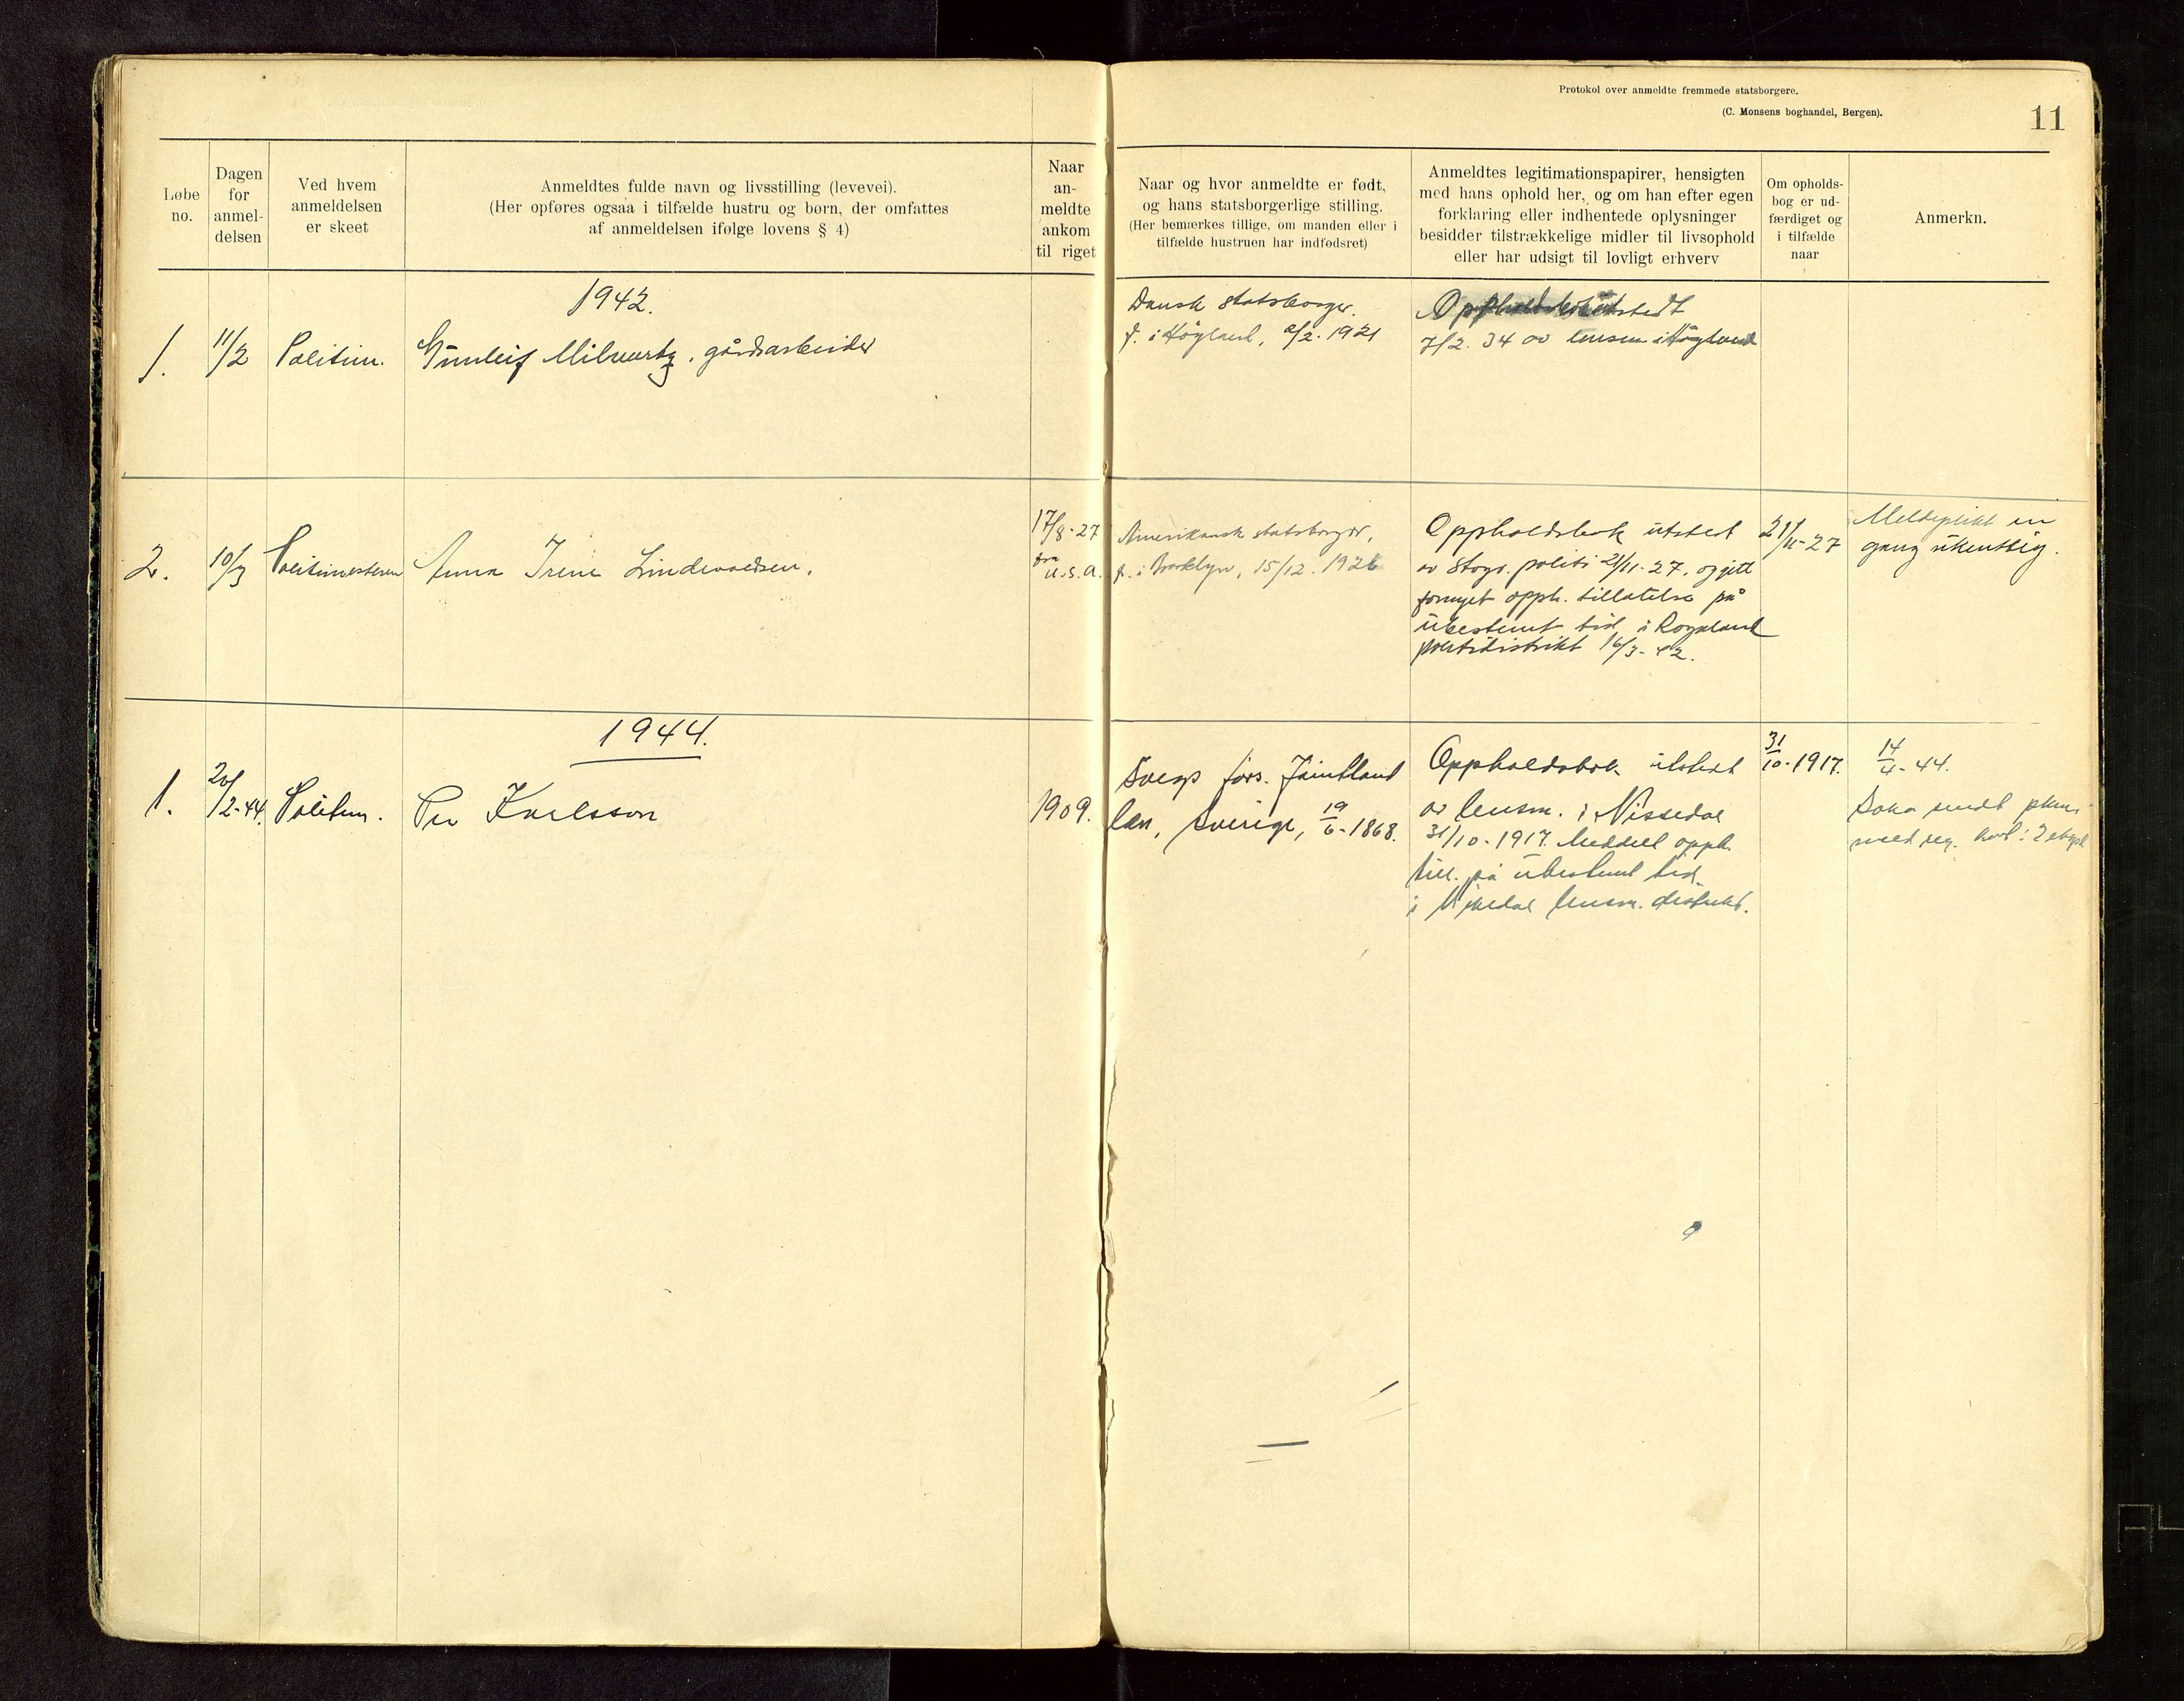 Protokol over anmeldte fremmede statsborgere.
(C. Monsens boghandel, Bergen).
11
Løbe no.
Dagen for anmel- delsen
Ved hvem anmeldelsen er skeet
Anmeldtes fulde navn og livsstilling (levevei).
(Her opføres ogsaa i tilfælde hustru og børn, der omfattes
af anmeldelsen ifølge lovens § 4)
Naar an- meldte ankom til riget
Naar og hvor anmeldte er født,
og hans statsborgerlige stilling.
(Her bemærkes tillige, om manden eller i
tilfælde hustruen har indfødsret)
Anmeldtes legitimationspapirer, hensigten
med hans ophold her, og om han efter egen
forklaring eller indhentede oplysninger
besidder tilstrækkelige midler til livsophold
eller har udsigt til lovligt erhverv
Om opholds- bog er ud- færdiget og i tilfælde naar
Anmerkn.
1942.
1.
11/2
Politim.
Gunleif Milwertz, gårdsarbeider
Dansk statsborger.
f. i Høyland, 2/2. 1921
Oppholdsbok utstedt
7/2. 34 av lensm i Høyland
2.
10/3
Politimesteren
Anna Irene Lindevaldsen.
17/8-27
fra
U.S.A.
Amerikansk statsborger,
f. i Brooklyn, 15/12. 1926
Oppholdsbok utsted
av Stvgr. politi 21/11-27. og gitt
fornyet opph. tillatelse på
ubestemt tid i Rogaland
politidistrikt 16/3-42.
21/11-27
Meldeplikt en
gang ukentlig.
1944.
1.
20/2-44.
Politim.
Per Karlsson
1909.
Svegs förs. Jämtland
län, Sverige, 19/6-1868.
Oppholdsbok utstedt
av lensm. i Nissedal
31/10-1917. Meddelt opph.
till. på ubestemt tid
i lensm. distrikt.
31/10-1917.
14/4-44.
sendt
med reg. kort i 2 ekspl